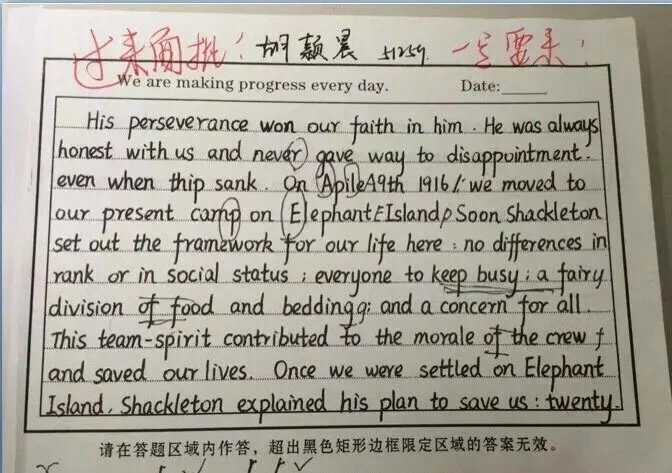 过来面批！ 胡颖晨 51259 一定要来！
We are making progress every day. Date:
His perseverance won our faith in him. He was always
honest with us and never gave way to disappointment.
even when thip sank. On Apile 49th 1916, we moved to
our present camp on Elephant Island, Soon Shackleton
set out the framework for our life here : no differences in
rank or in social status ; everyone to keep busy ; a fairy
division of food and bedding ; and a concern for all.
This team-spirit contributed to the morale of the crew
and saved our lives. Once we were settled on Elephant
Island, Shackleton explained his plan to save us : twenty-
请在答题区域内作答，超出黑色矩形边框限定区域的答案无效。